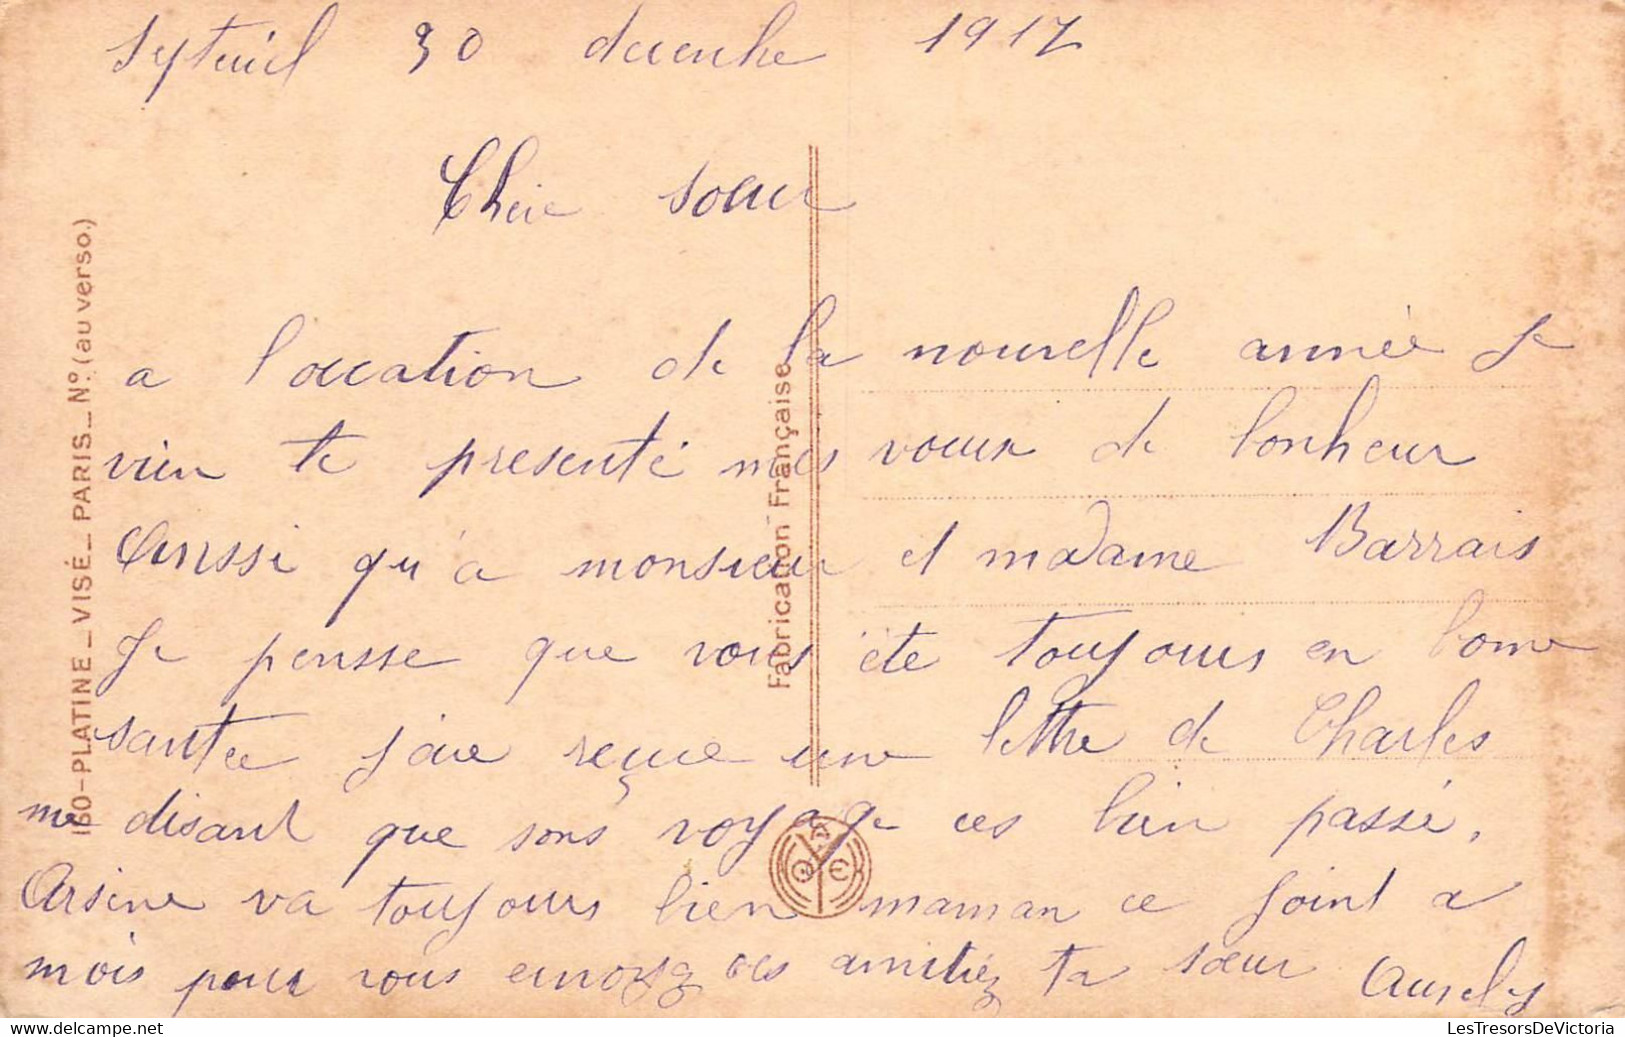 30 décembre 1917
Chère soeur
a l'occation de la nouvelle année je
vien te presenté mes voeux de bonheur
Aussi qu'a monsieur et madame Barrais
Je pensse que vous ête toujours en bonne
santée j'aie reçue une lettre de Charles
me disant que sons voyage ces bien passé.
Arsène va toujours bien maman ce joint a
mois pour vous envoyez ces amitiéz ta soeur
ISO-PLATINE_VISÉ_PARIS_N°.(au verso.)
Fabrication Française
LesTresorsDeVictoria